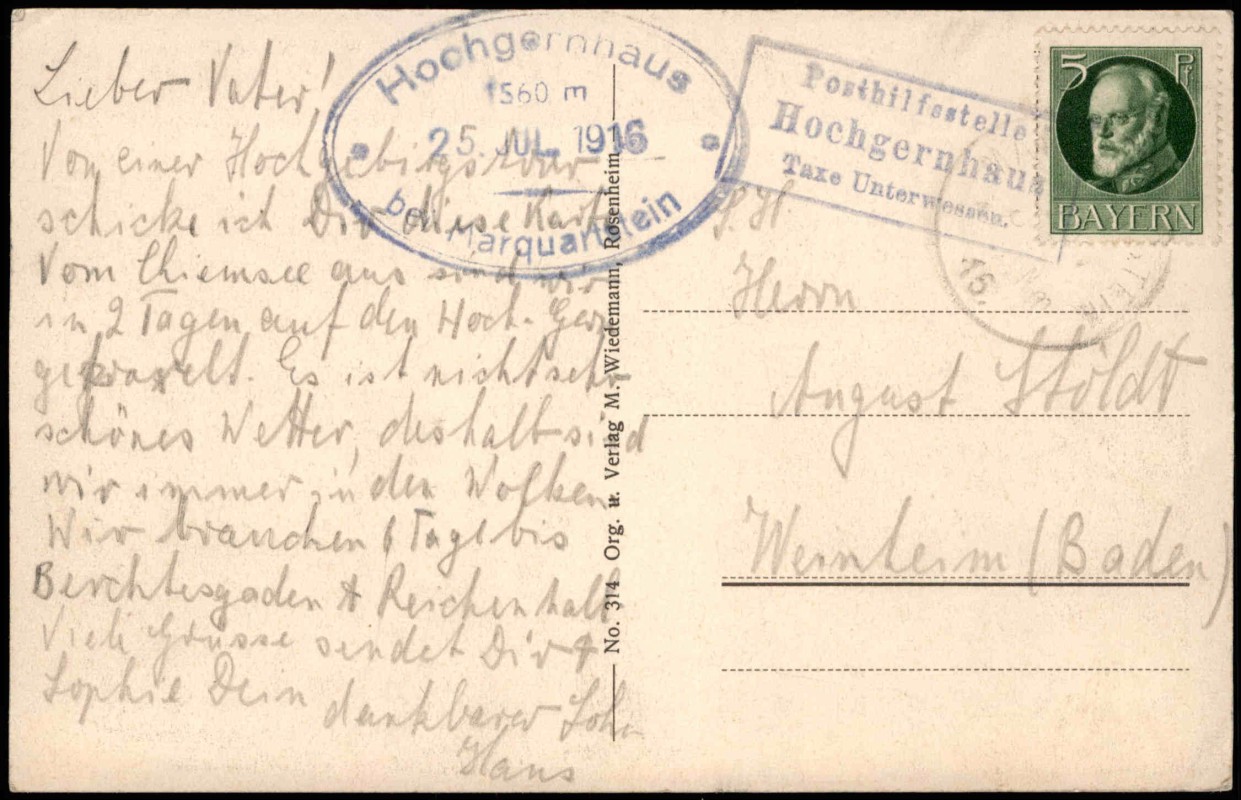 Lieber Vater!
Von einer Hochgebirgstour
schicke ich Dir diese Karte
Vom Chiemsee aus sind wir
in 2 Tagen auf den Hoch-Gern
gekraxelt. Es ist nicht sehr
schönes Wetter, deshalb sind
wir immer in den Wolken
Wir brauchen 6 Tage bis
Berchtesgaden & Reichenhall
Viele Grüsse sendet Dir &
Sophie Dein dankbarer Sohn
Hans
Hochgernhaus
1560 m
25. JUL. 1916
bei Marquartstein
No. 314 Org. u. Verlag M. Wiedemann, Rosenheim
Posthilfsstelle
Hochgernhaus
Taxe Unterwessen.
5 Pf
BAYERN
16.
S. H.
Herrn
August Stöldt
Weinheim (Baden)